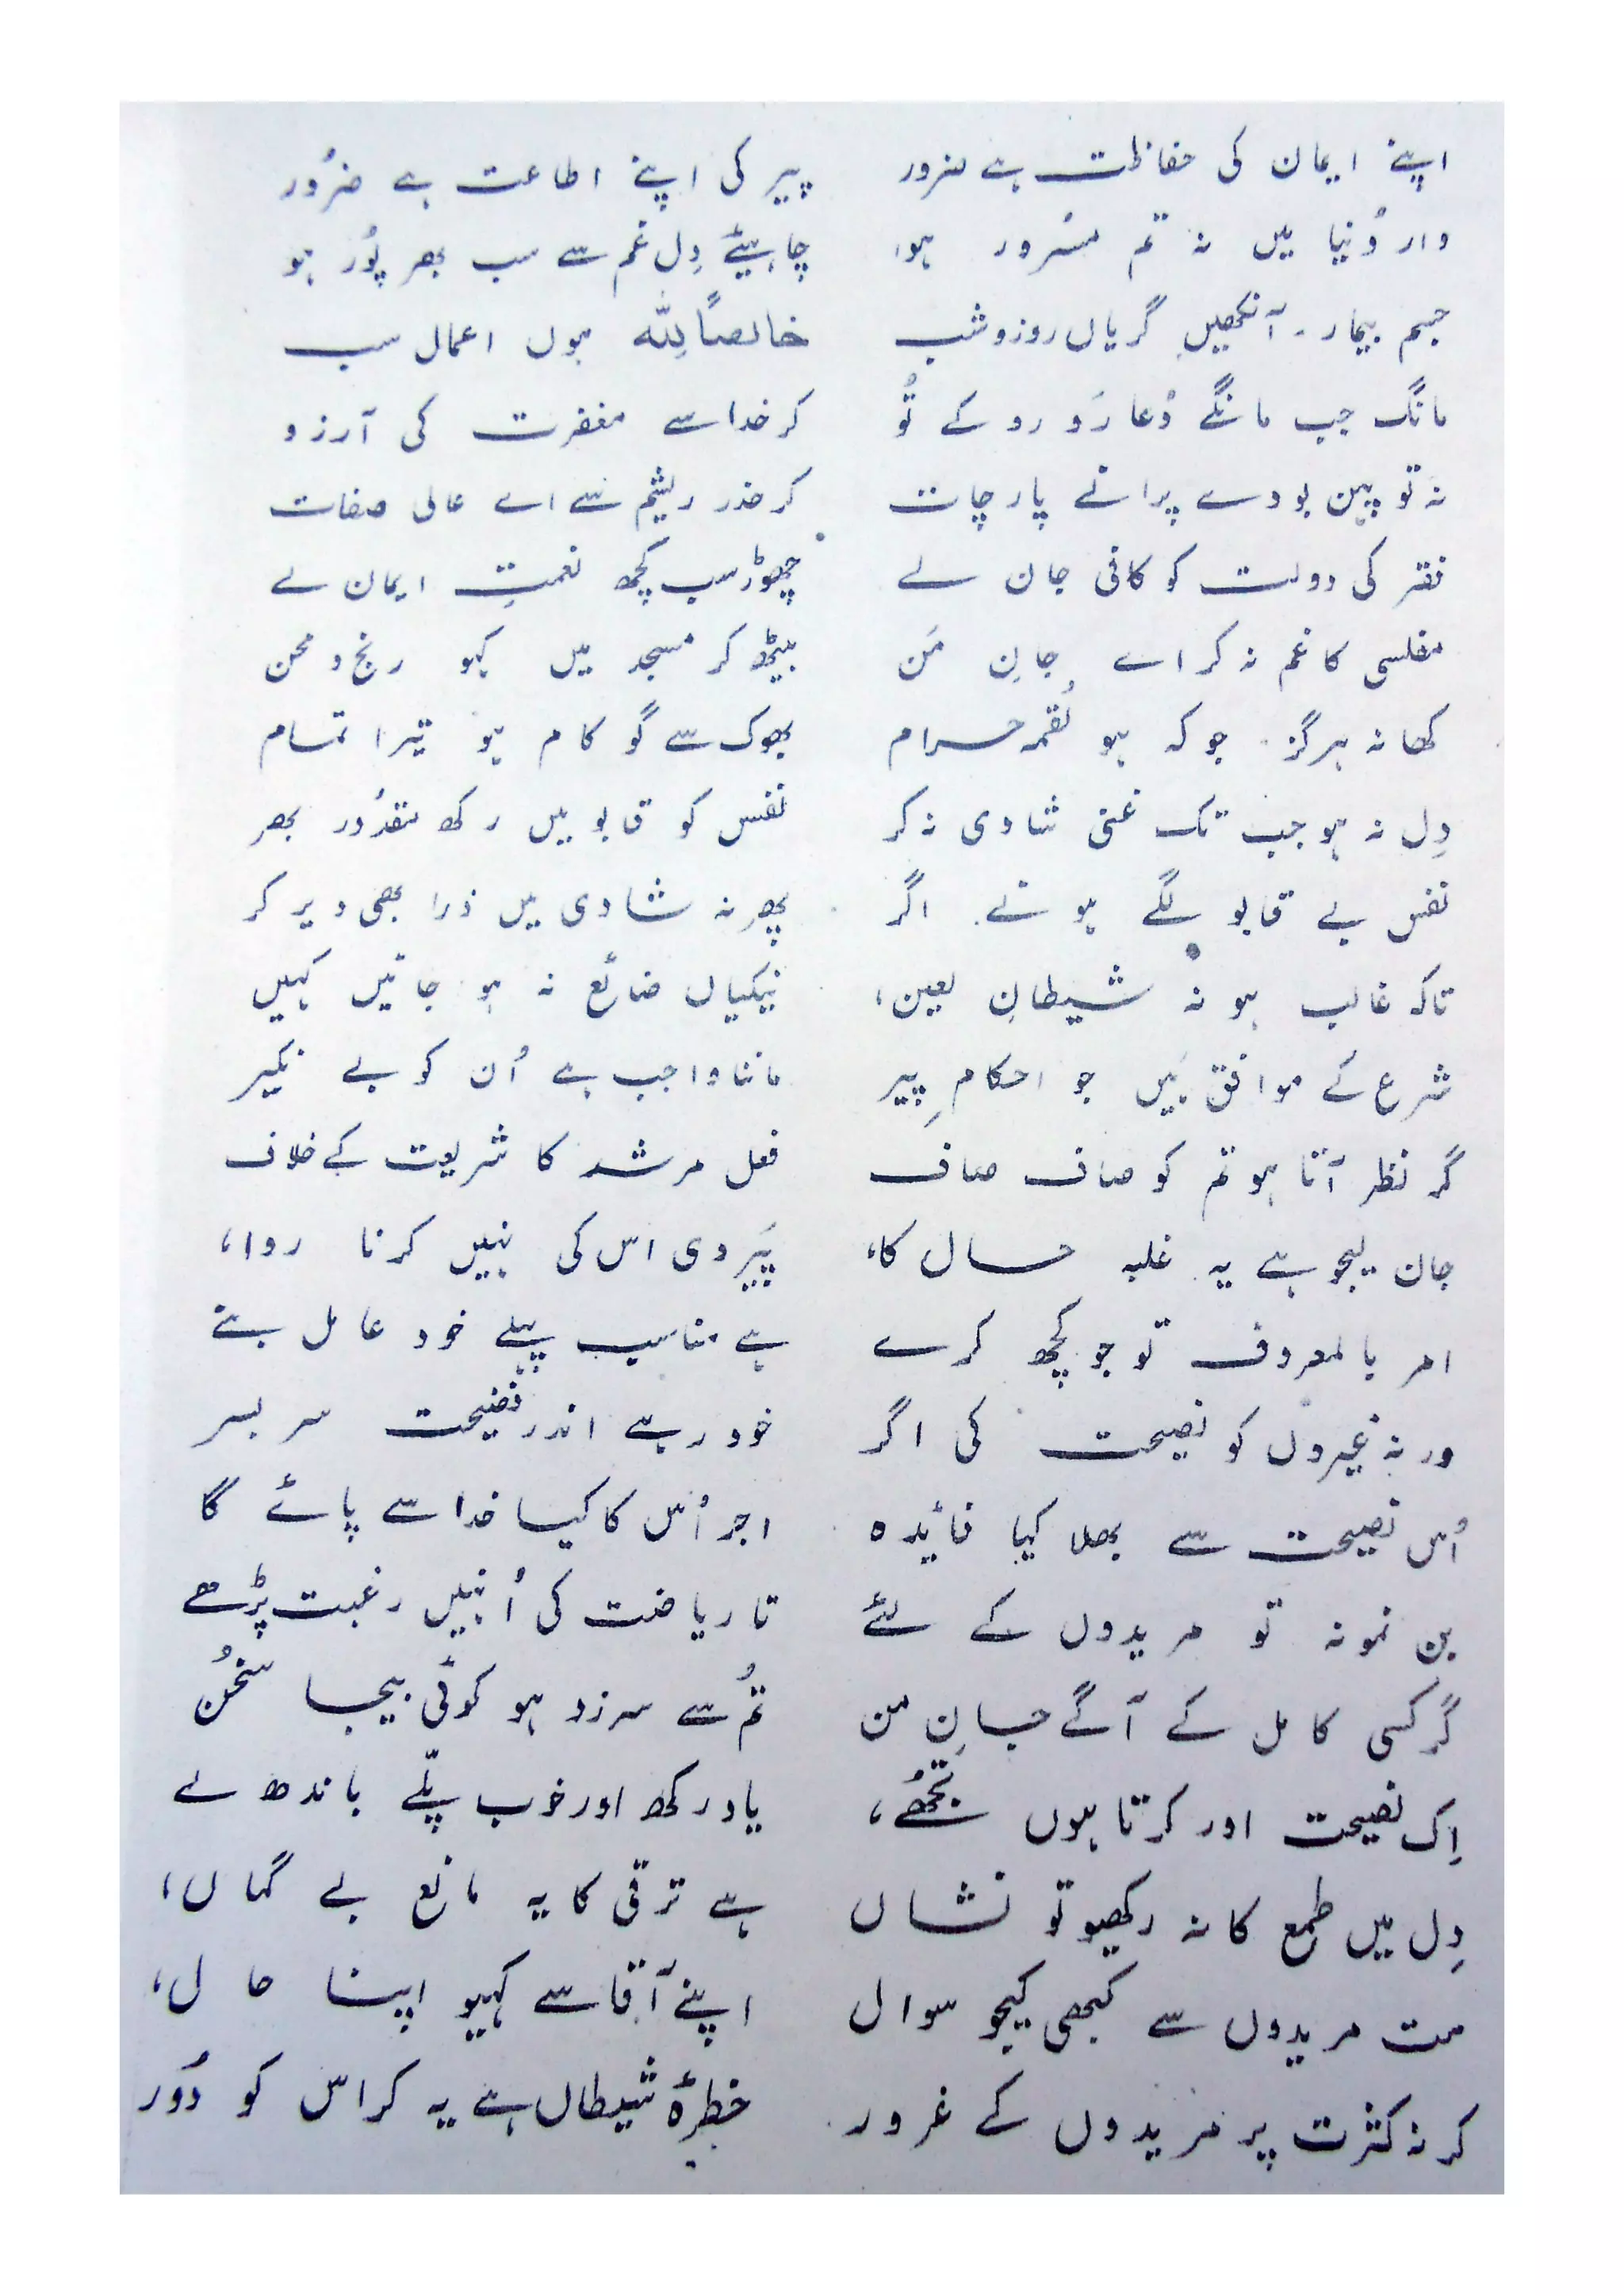 اپنے ایمان کی حفاظت ہے ضرور پیر کی اپنے اطاعت ہے ضرُور
دار دُنیا میں نہ تم مسُرور ہو، چاہیئے دِل غم سے سب بھر پُور ہو
جسم بیمار ۔ آنکھیں گریاں روز و شب خالصاً لِلّٰہ ہوں اعمال سب
مانگ جب مانگے دُعا رَو رو کے تُو کر خدا سے مغفرت کی آرزو
نہ تو پہن بودے پرانے پارچات کر حذر ریشم سے اے عالی صفات
فقر کی دولت کو کافی جان لے چھوڑ سب کچھ نعمتِ ایمان لے
مفلسی کا غم نہ کر اے جانِ مَن بیٹھ کر مسجد میں کہو رنج و محن
کھا نہ ہرگز جو کہ ہو لُقمہ حرام بھوک سے گو کام ہو تیرا تمام
دِل نہ ہو جب تک غنی شادی نہ کر نفس کو قابو میں رکھ مقدُور بھر
نفس بے قابو لگے ہونے اگر پھر نہ شادی میں ذرا بھی دیر کر
تاکہ غالب ہو نہ شیطانِ لعین، نیکیاں ضائع نہ ہو جائیں کہیں
شرع کے موافق ہَیں جو احکامِ پیر ماننا واجب ہے اُن کو بے نکیر
گر نظر آتا ہو تم کو صاف صاف فعل مرشد کا شریعت کے خلاف
جان لیجو ہے یہ غلبہ حال کا، پَیروی اس کی نہیں کرنا روا،
امر بالمعروف تو جو کچھ کرے ہے مناسب پہلے خود عامل بنے
ورنہ غیروں کو نصیحت کی اگر خود رہے اندر فضیحت سر بسر
اُس نصیحت سے بھلا کیا فائیدہ اجر اُس کا کیا خدا سے پائے گا
بن نمونہ تو مریدوں کے لئے تا ریاضت کی اُنہیں رغبت پڑھے
گر کسی کامل کے آگے جانِ من تمُ سے سرزد ہو کوئی بیجا سخُن
اِک نصیحت اور کرتا ہوں تجُھے، یاد رکھ اور خوب پلّے باندھ لے
دِل میں طمع کا نہ رکھیو تو نشاں ہے ترقّی کا یہ مانع بے گماں،
مت مریدوں سے کبھی کیجو سوال اپنے آقا سے کہیو اپنا حال،
کر نہ کثرت پر مریدوں کے غرور خطرۂ شیطاں ہے یہ کر اس کو دُور